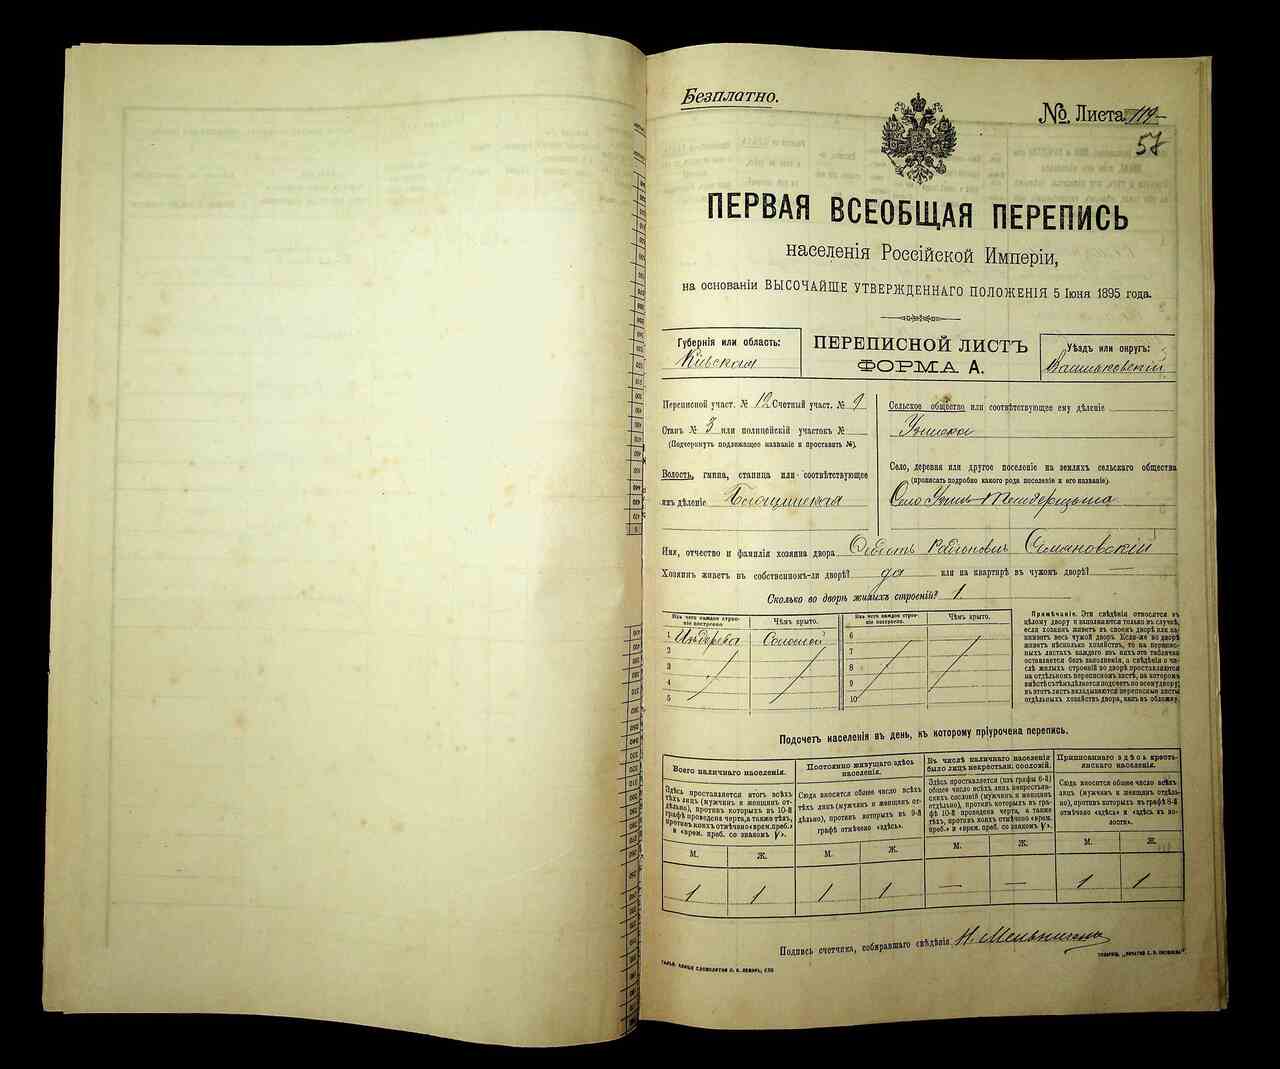 Безплатно.
№ Листа 119
57
ПЕРВАЯ ВСЕОБЩАЯ ПЕРЕПИСЬ
населенія Россійской Имперіи,
на основаніи ВЫСОЧАЙШЕ УТВЕРЖДЕННАГО ПОЛОЖЕНІЯ 5 Іюня 1895 года.
Губернія или область:
Кіевская
ПЕРЕПИСНОЙ ЛИСТЪ
ФОРМА А.
Уѣздъ или округъ:
Васильковскій
Переписной участ. № 12 Счетный участ. № 9
Станъ № 3 или полицейскій участокъ №
(Подчеркнуть подлежащее названіе и проставить №).
Волость, гмина, станица или соотвѣтствующее
имъ дѣленіе
Сельское общество или соотвѣтствующее ему дѣленіе
Село, деревня или другое поселеніе на земляхъ сельскаго общества
(прописать подробно какого рода поселеніе и его названіе).
Село
Имя, отчество и фамилія хозяина двора Радіоновъ
Хозяинъ живетъ въ собственномъ-ли дворѣ? да или на квартирѣ въ чужомъ дворѣ? —
Сколько во дворѣ жилыхъ строеній? 1
Изъ чего каждое строеніе построено.
Чѣмъ крыто.
Изъ чего каждое строеніе построено.
Чѣмъ крыто.
1 Изъ дерева Соломой 6
2 7
3 8
4 9
5 10
Примѣчаніе. Эти свѣдѣнія относятся къ
цѣлому двору и заполняются только въ случаѣ,
если хозяинъ живетъ въ своемъ дворѣ или занимаетъ
весь чужой дворъ. Если-же во дворѣ
живетъ нѣсколько хозяйствъ, то на переписныхъ
листахъ каждаго изъ нихъ эта табличка
оставляется безъ заполненія, а свѣдѣнія о числѣ
жилыхъ строеній во дворѣ проставляются
на отдѣльномъ переписномъ листѣ, на которомъ
вмѣстѣ съ тѣмъ дѣлается подсчетъ по всему двору;
въ этотъ листъ вкладываются переписные листы
отдѣльныхъ хозяйствъ двора, какъ въ обложку.
Подсчетъ населенія въ день, къ которому пріурочена перепись.
Всего наличнаго населенія.
Здѣсь проставляется итогъ всѣхъ
тѣхъ лицъ (мужчинъ и женщинъ отдѣльно),
противъ которыхъ въ 10-й
графѣ проведена черта, а также тѣхъ,
противъ коихъ отмѣчено «врем. преб.»
и «врем. преб. со знакомъ V».
Постоянно живущаго здѣсь
населенія.
Сюда вносится общее число всѣхъ
тѣхъ лицъ (мужчинъ и женщинъ отдѣльно),
противъ которыхъ въ 9-й
графѣ отмѣчено «здѣсь».
Въ числѣ наличнаго населенія
было лицъ некрестьян. сословій.
Здѣсь проставляется (изъ графы 6-й)
общее число всѣхъ лицъ некрестьянскихъ
сословій (мужчинъ и женщинъ
отдѣльно), противъ которыхъ въ графѣ
10-й проведена черта, а также
тѣхъ, противъ коихъ отмѣчено «врем.
преб.» и «врем. преб. со знакомъ V».
Приписаннаго здѣсь крестьянскаго
населенія.
Сюда вносится общее число всѣхъ
лицъ (мужчинъ и женщинъ отдѣльно),
противъ которыхъ въ графѣ 8-й
отмѣчено «здѣсь» и «здѣсь въ волости».
М. Ж. М. Ж. М. Ж. М. Ж.
1 1 1 1 — — 1 1
Подпись счетчика, собиравшаго свѣдѣнія